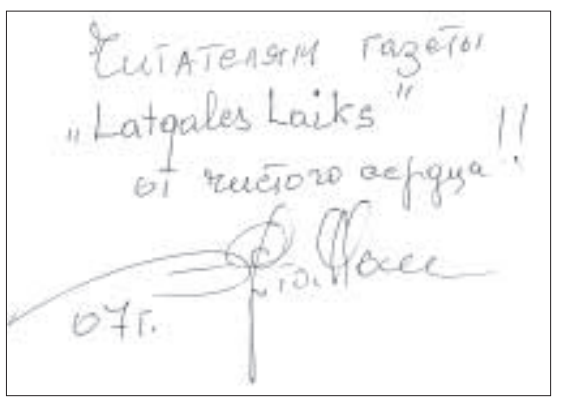 Читателям газеты
"Latgales Laiks"
от чистого сердца!!
07г.